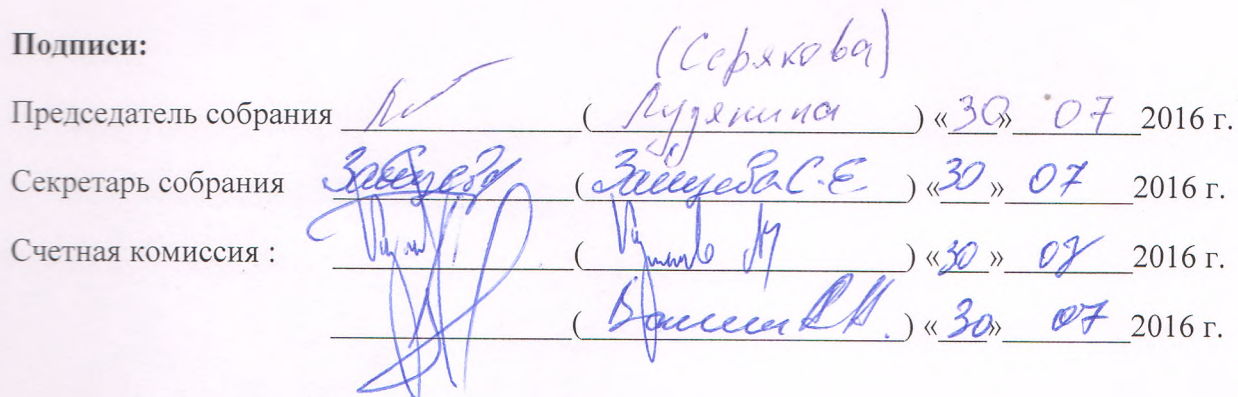 Подписи:
(Серякова)
Председатель собрания ( Лудянина ) «30» 07 2016 г.
Секретарь собрания Зайцева ( Зайцева С.Е ) «30» 07 2016 г.
Счетная комиссия : ( ) «30» 07 2016 г.
( ) «30» 07 2016 г.